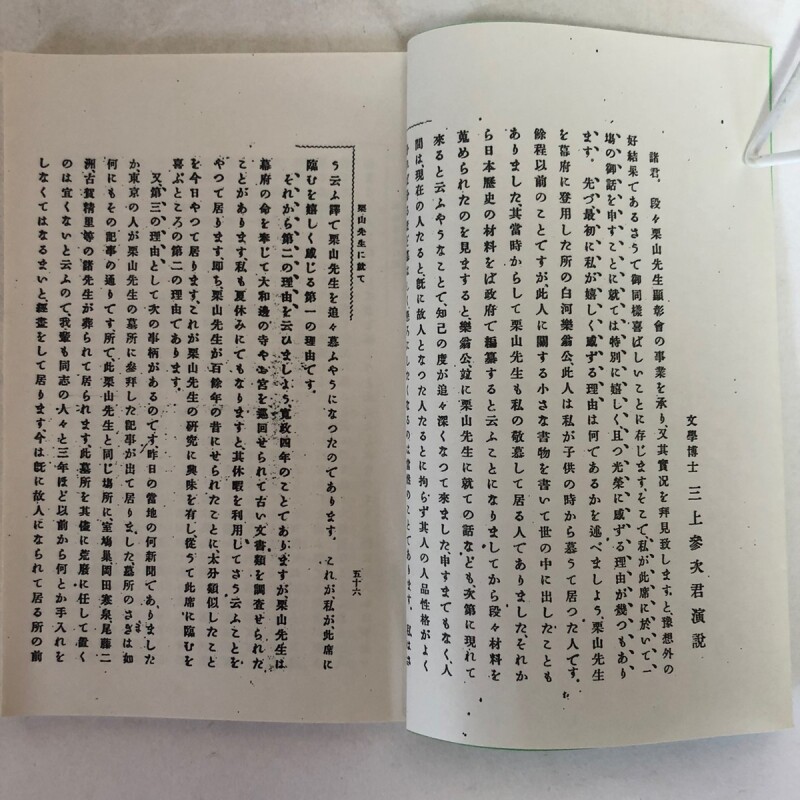 文學博士 三上參次君演說
諸君、段々栗山先生顯彰會の事業を承り、又其實况を拜見致しますと、豫想外の
好結果であるさうで御同樣喜ばしいことに存じます。そこで、私が此席に於いて一
塲の御話を申すことに就ては特別に嬉しく、且つ光榮に感ずる理由が幾つもあり
ます。先づ最初に私が嬉しく感ずる理由は何であるかを述べましよう、栗山先生
を幕府に登用した所の白河樂翁公、此人は私が子供の時から慕うて居つた人です。
餘程以前のことですが、此人に關する小さな書物を書いて世の中に出したことも
ありました、其當時からして栗山先生も私の敬慕して居る人でありました、それか
ら日本歷史の材料をば政府で編纂すると云ふことになりましてから段々材料を
蒐められたのを見ますると樂翁公竝に栗山先生に就ての話なども、次第に現れて
來ると云ふやうなことで、知己の度が追々深くなつて來ました、申すまでもなく、人
間は、現在の人たると、既に故人となつた人たるとに拘らず其人の人品性格がよく
栗山先生に就て
五十六
う云ふ譯で栗山先生を追々慕ふやうになつたのであります。これが、私が、此席に
臨むを嬉しく感じる第一の理由です。
それから第二の理由を云ひましよう、寬政四年のことでありますが、栗山先生は
幕府の命を奉じて大和邊の寺やお宮を巡回せられて古い文書類を調査せられた
ことがあります、私も夏休みにでもなりますと其休暇を利用してさう云ふことを
やつて居ります、卽ち、栗山先生が百餘年の昔にせられたことに、太分類似したこと
を今日やつて居ります、これが栗山先生の研究に興味を有し、從うて此席に臨むを
喜ぶところの第二の理由であります。
又、第三の理由として次の事柄があるのです、昨日の當地の何新聞でありました
か東京の人が栗山先生の墓所に參拜した記事が出て居りました、墓所のさまは如
何にもその記事の通りです、所で、栗山先生と同じ塲所に、室鳩巢、岡田寒泉、尾藤二
洲、古賀精里等の諸先生が葬られて居られます、此墓所を其儘に荒廢に任して置く
のは宜くないと云ふので、我輩も同志の人々と三年ほど以前から何とか手入れを
しなくてはなるまいと經畫をして居ります、今は既に故人になられて居る所の前